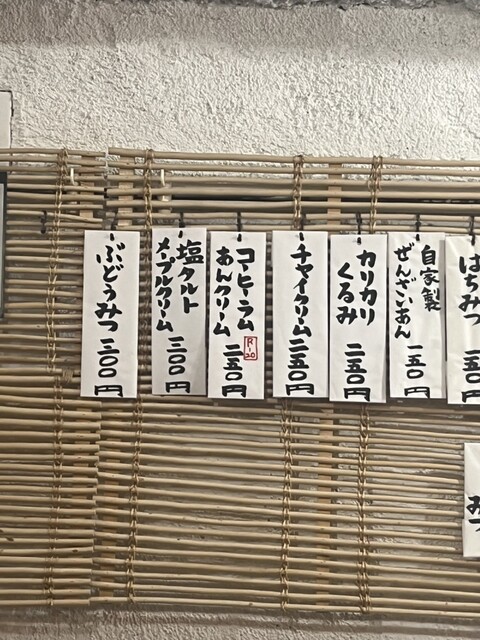 はちみつ
一五〇円
自家製
ぜんざいあん
一五〇円
カリカリ
くるみ
二五〇円
チャイクリーム
二五〇円
コーヒーラム
あんクリーム
R-20
二五〇円
塩タルト
メープルクリーム
三〇〇円
ぶどうみつ
三〇〇円
みつ